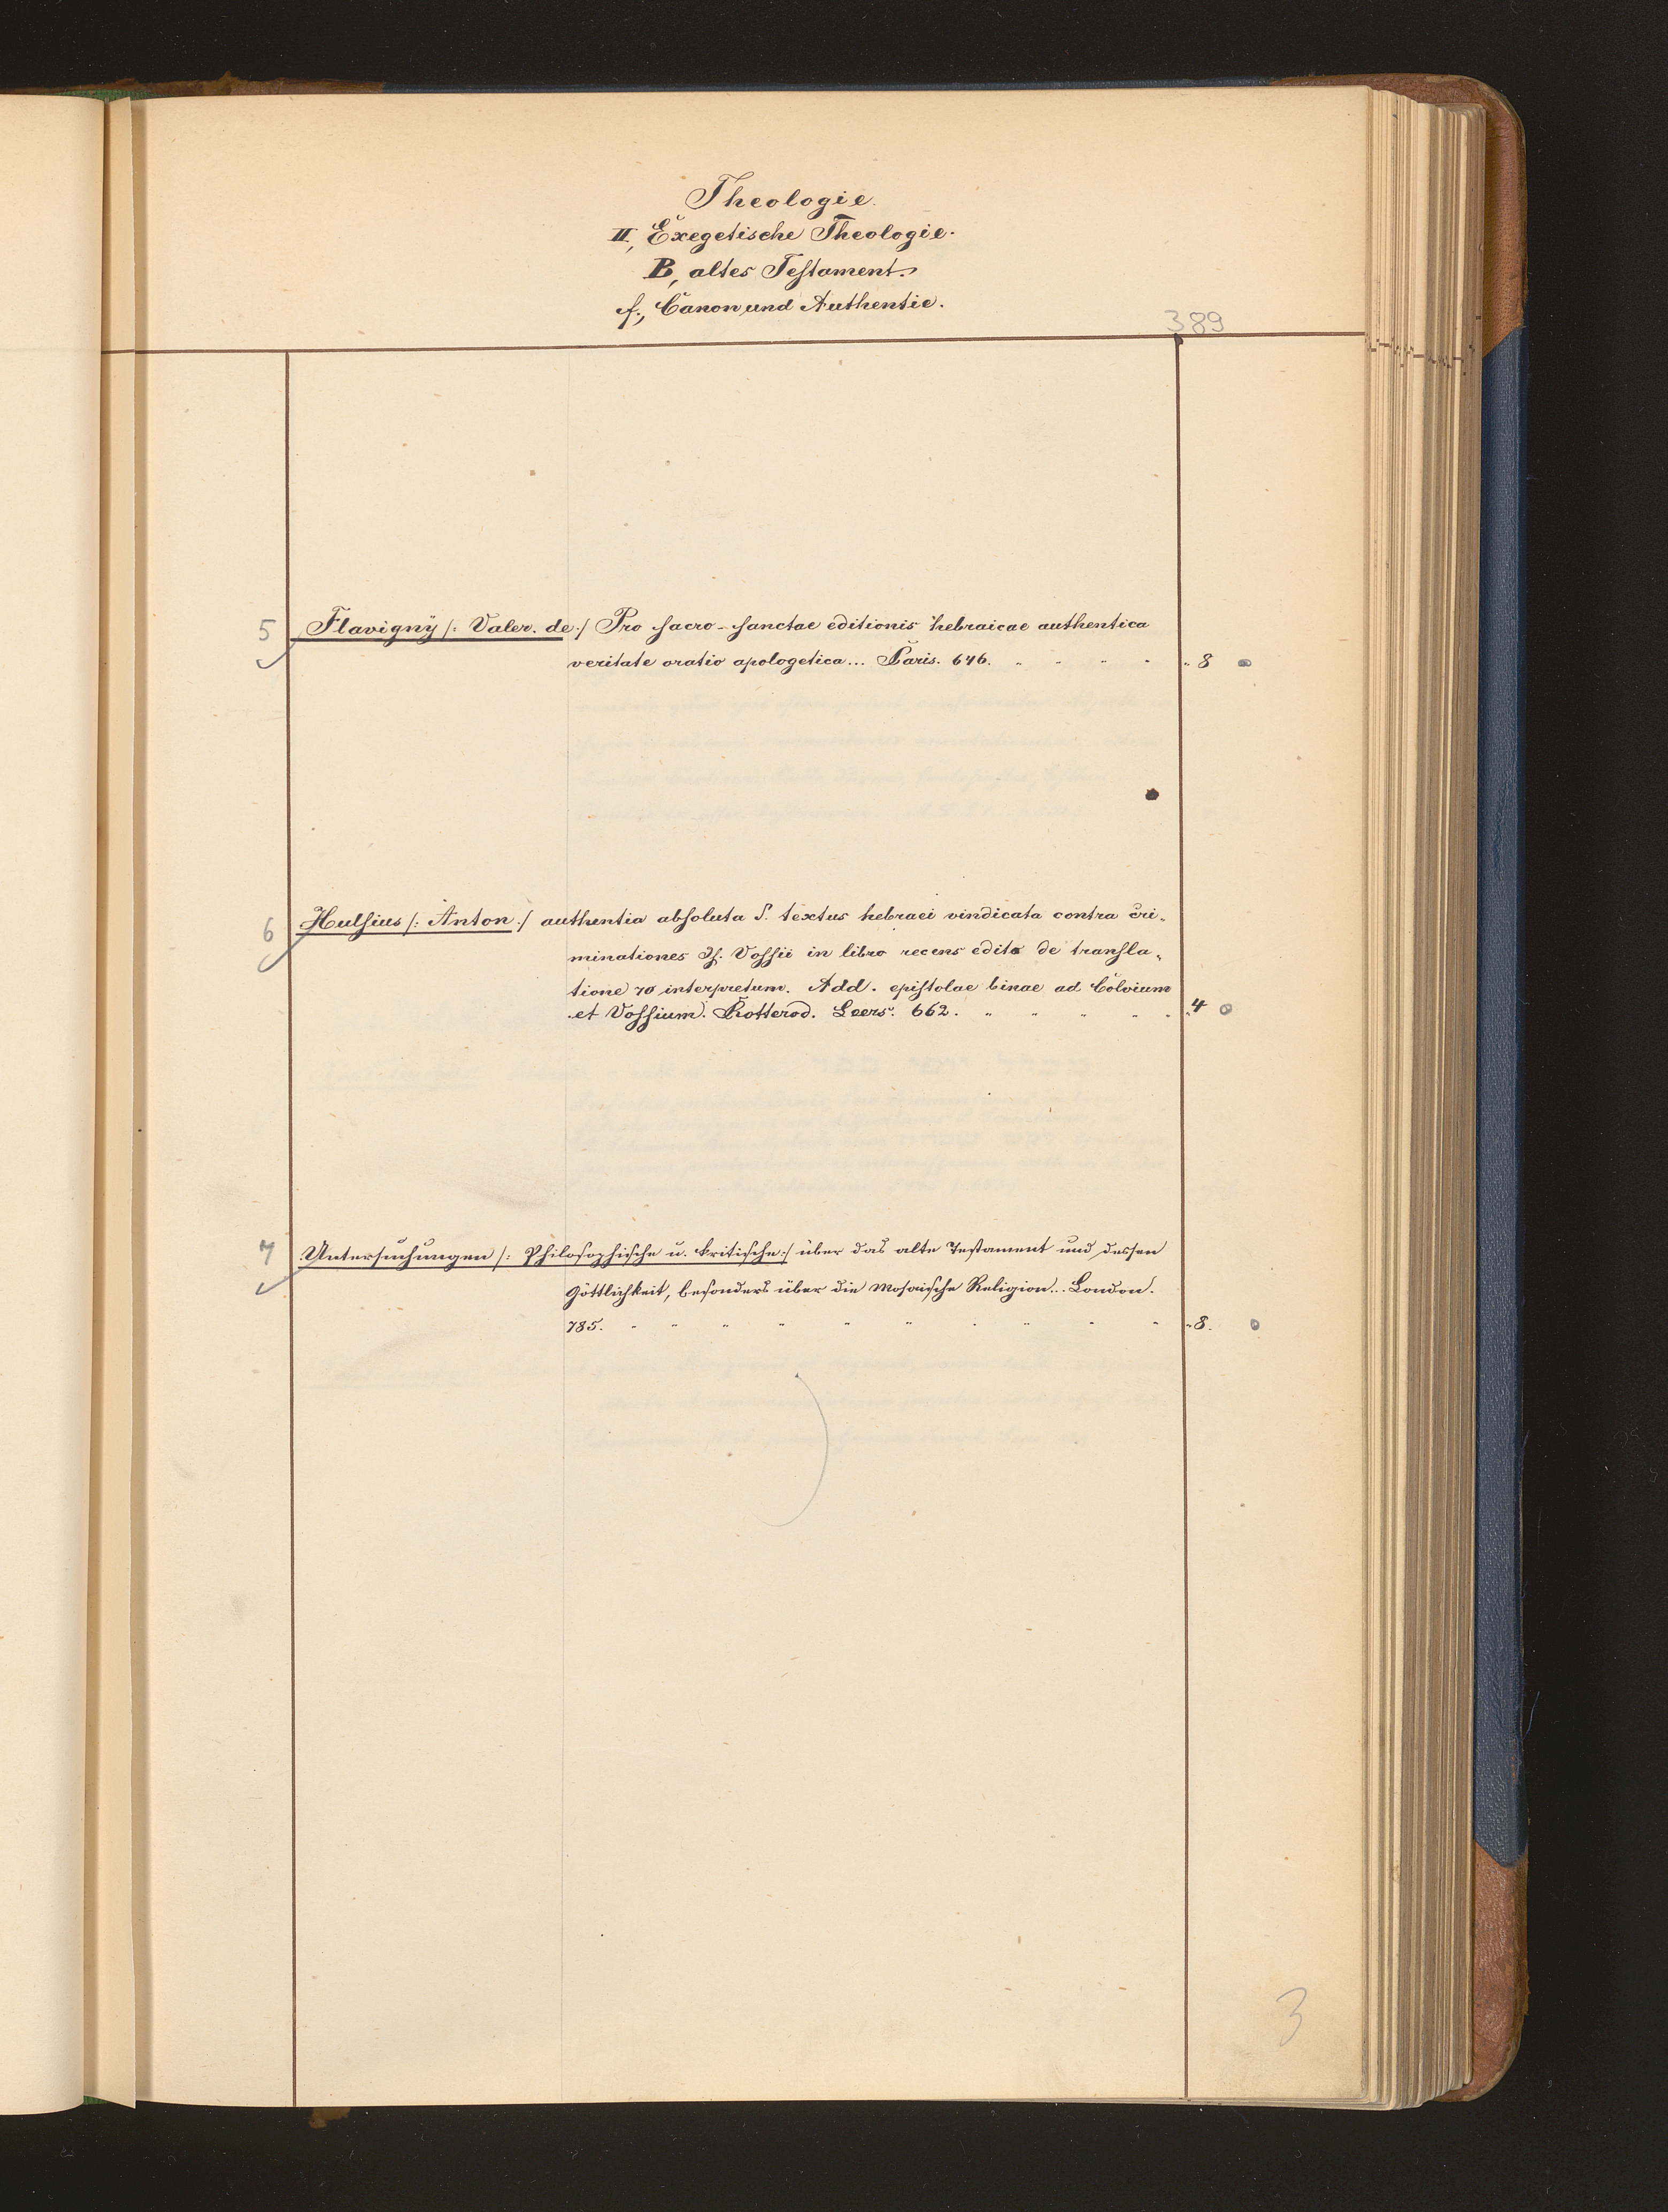 Theologie.
II, Exegetische Theologie.
B, altes Testament.
f., Canon und Authentie.
389
5 Flavigny /: Valer. de :/ Pro sacro-sanctae editionis hebraicae authentica
veritate oratio apologetica... Paris. 646. " " " " " 8
6 Hulsius /: Anton :/ authentia absoluta S. textus hebraei vindicata contra cri-
minationes Js. Vossii in libro recens edito de transla-
tione 70 interpretum. Add. epistolae binae ad Colvium
et Vossium. Rotterod. Leers. 662. " " " " " 4
7 Untersuchungen /: Philosophische u. kritische :/ über das alte Testament und dessen
Göttlichkeit, besonders über die Mosaische Religion... London.
785. " " " " " " " " " " " 8.
3